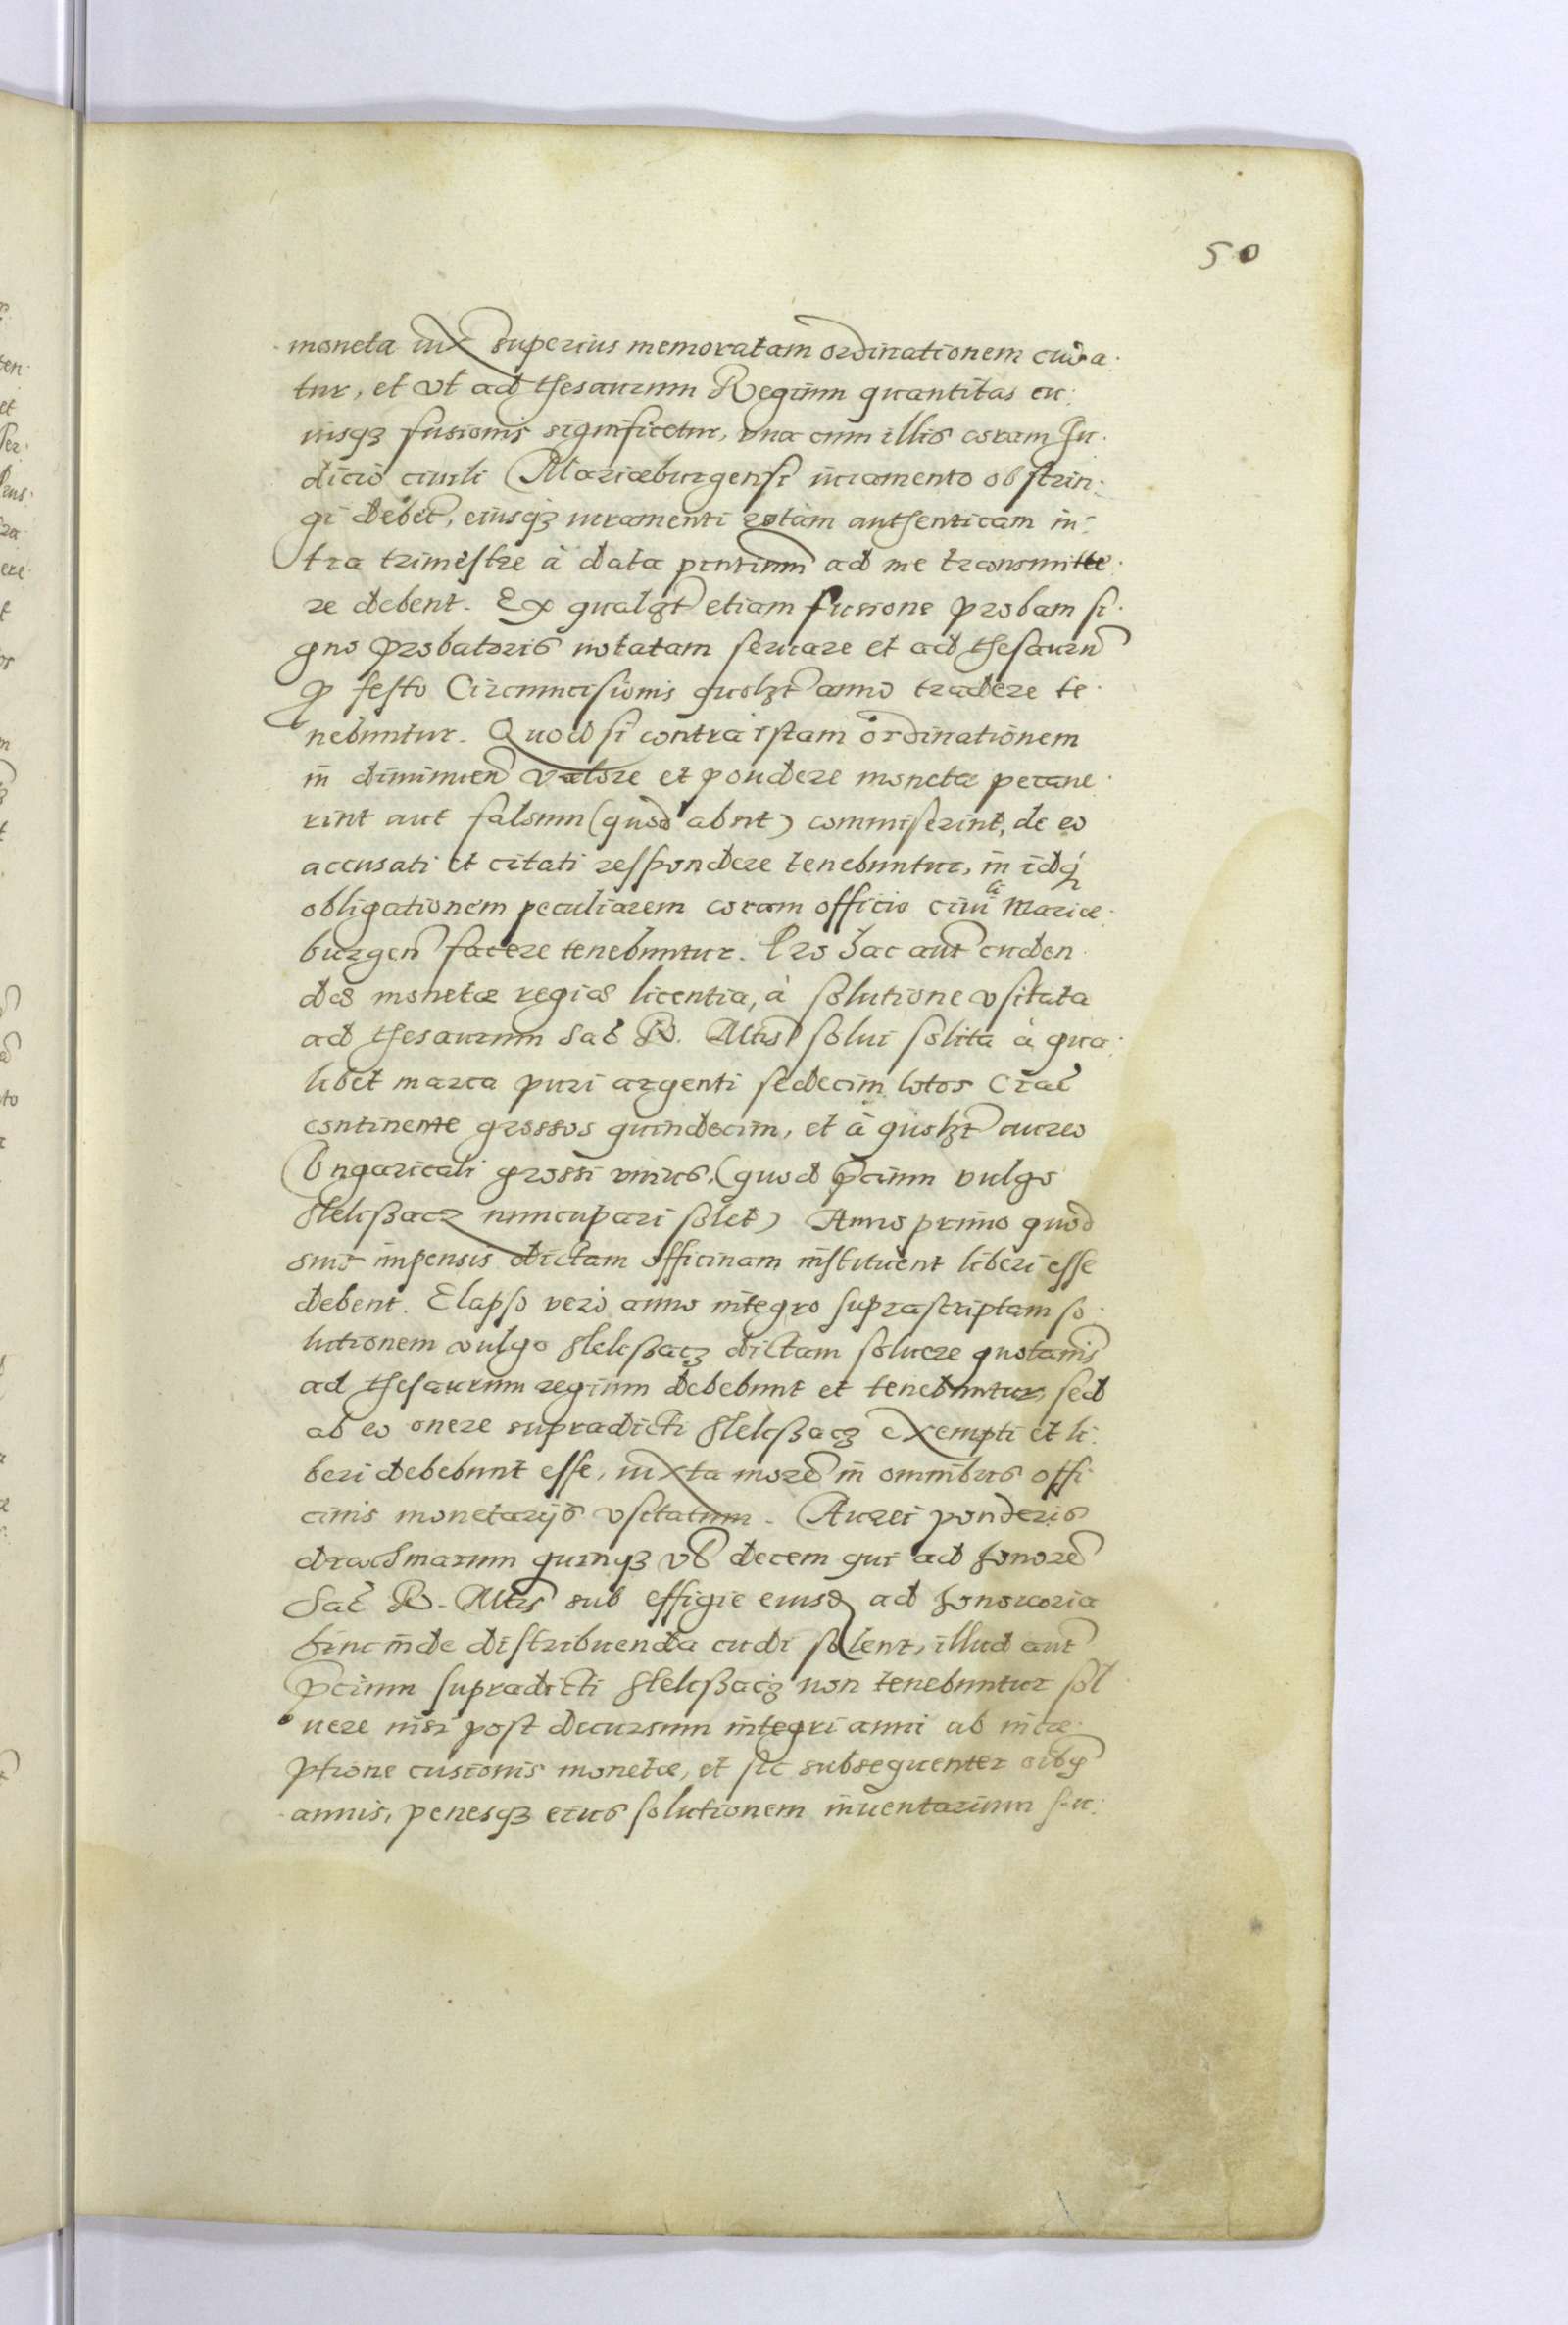 50
moneta iux superius memoratam ordinationem cuda:
tur, et vt ad thesaurum Regium quantitas cu:
iusqꝫ fusionis significetur, vna cum illis coram Ju:
dicio ciuili Mariæburgensi iuramento obstrin:
gi debet, eiusqꝫ iuramenti rotam authenticam in:
tra trimestre à data pntium ad me transmitte:
re debent. Ex qualꝫt etiam fusione probam si:
gno probatoris notatam seruare et ad thesaurũ
ꝓ festo Circumcisionis quolꝫt anno tradere te:
nebuntur. Quod si contra istam ordinationem
in diminuend valore et pondere monetæ peccaue:
rint aut falsum (quod absit) commiserint, de eo
accusati et citati respondere tenebuntur, in idq̃
obligationem peculiarem coram officio ciuili Mariæ:
burgeñ facere tenebuntur. Pro hac aut cuden:
dæ monetæ regiæ licentia, à solutione vsitata
ad thesaurum Sac R. Mtis solui solita à qua:
libet marca puri argenti sedecim lotos Crac
continente grossos quindecim, et à quolꝫt aureo
Vngaricali grossi vnius, (quod pcium vulgo
Slelschacz nuncupari solet) Anno primo quod
suis impensis dictam officinam instituent liberi esse
debent. Elapso verò anno integro suprascriptam so:
lutionem vulgo Slelschacz dictam soluere quotannis
ad thesaurum regium debebunt et tenebuntur, sed
ab eo onere supradicti Slelschacz exempti et li:
beri debebunt esse, iuxta morẽ in omnibus offi:
cinis monetarijs vsitatum. Aurei ponderis
drachmarum quinqꝫ vl decem qui ad honorẽ
Sac R. Mtis sub effigie eiusd ad honoraria
hinc inde distribuenda cudi solent, illud aut
pcium supradicti Slelschacz non tenebuntur sol:
uere nisi post decursum integri anni ab incæ:
ptione cusionis monetæ, et sic subsequenter oibꝫ
annis, penesqꝫ eius solutionem inuentarium su: